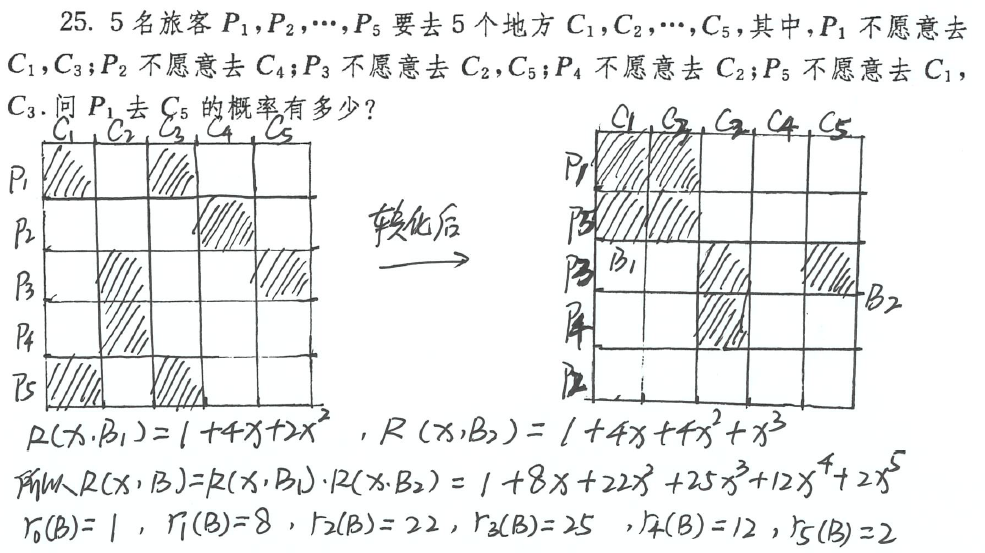 25. 5名旅客 P₁,P₂,…,P₅ 要去5个地方 C₁,C₂,…,C₅,其中,P₁ 不愿意去
C₁,C₃;P₂ 不愿意去 C₄;P₃ 不愿意去 C₂,C₅;P₄ 不愿意去 C₂;P₅ 不愿意去 C₁,
C₃.问 P₁ 去 C₅ 的概率有多少?
C₁ C₂ C₃ C₄ C₅
P₁
P₂
P₃
P₄
P₅
转化后
C₁ C₂ C₃ C₄ C₅
P₁
P₅
P₃ B₁
B₂
P₄
P₂
R(x,B₁)=1+4x+2x² , R(x,B₂)=1+4x+4x²+x³
所以R(x,B)=R(x,B₁)·R(x,B₂)=1+8x+22x²+25x³+12x⁴+2x⁵
r₀(B)=1, r₁(B)=8, r₂(B)=22, r₃(B)=25, r₄(B)=12, r₅(B)=2